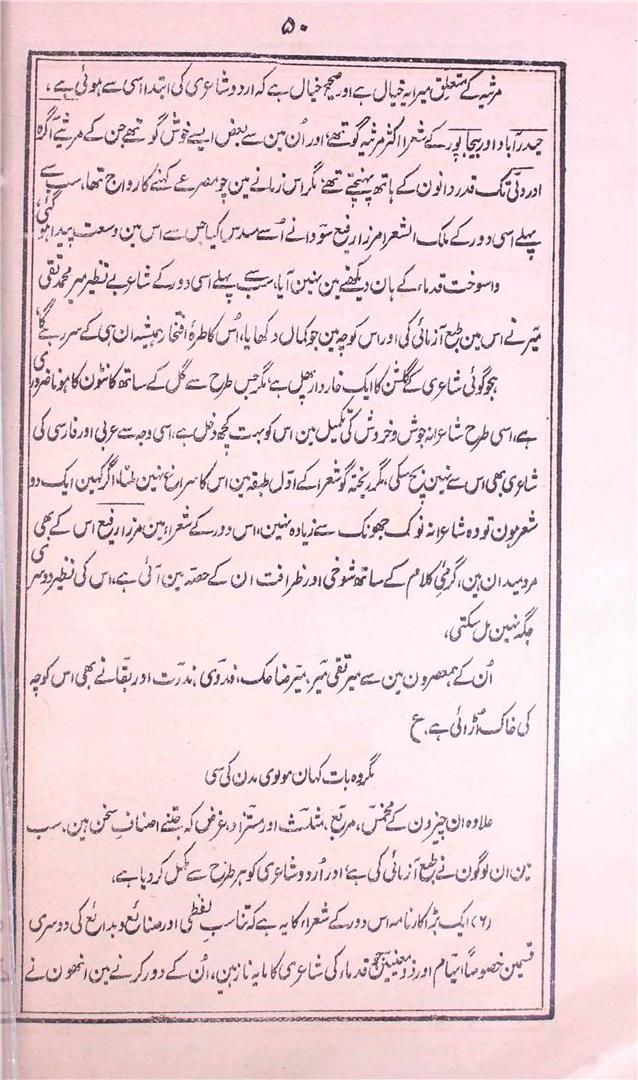 ۵۰
مرثیہ کے متعلق میرا یہ خیال ہے اور صحیح خیال ہے کہ اردو شاعری کی ابتدا اسی سے ہوئی ہے،
حیدرآباد اور بیجاپور کے شعرا اکثر مرثیہ گو تھے، اور اُن مین سے بعض ایسے خوش گو تھے جن کے مرثیے آگرہ
اور دلّی تک قدر دانون کے ہاتھ پہنچتے تھے، مگر اس زمانے مین چو مصرعے کہنے کا رواج تھا، سب سے
پہلے اسی دور کے ملک الشعرا مرزا رفیع سودا نے اُسے مسدس کیا جس سے اس مین وسعت پیدا ہو گئی،
واسوخت قدماء کے ہان دیکھنے مین نہین آیا، سب سے پہلے اسی دور کے شاعر بے نظیر میر محمد تقی
میر نے اس مین طبع آزمائی کی اور اس کوچہ مین جو کمال دکھایا، اُس کا طرۂ افتخار ہمیشہ ان ہی کے سر رہے گا،
ہجو گوئی شاعری کے گلشن کا ایک خاردار پھل ہے، مگر جس طرح سے گل کے ساتھ کانٹون کا ہونا ضروری
ہے، اسی طرح شاعرانہ جوش و خروش کی تکمیل مین اس کو بہت کچھ دخل ہے، اسی وجہ سے عربی اور فارسی کی
شاعری بھی اس سے نہین بچ سکی، مگر ریختہ گو شعرا کے اوّل طبقہ مین اس کا سراغ نہین ملتا، اگر کہین ایک دو
شعر ہون تو وہ شاعرانہ نوک جھونک سے زیادہ نہین، اس دور کے شعراء مین مرزا رفیع اس کے بھی
مرد میدان ہین، گرمئ کلام کے ساتھ شوخی اور ظرافت ان کے حصّہ مین آئی ہے، اس کی نظیر دوسری
جگہ نہین مل سکتی،
اُن کے ہمعصرون مین سے میر تقی میر، میر ضاحک، فدوی، ندرت اور بقا نے بھی اس کوچہ
کی خاک اُڑائی ہے، ع
مگر وہ بات کہان مولوی مدن کی سی
علاوہ ان چیزون کے مخمّس، مربّع، مثلّث اور مستزاد، غرض کہ جتنے اصنافِ سخن ہین، سب
مین ان لوگون نے طبع آزمائی کی ہے، اور اُردو شاعری کو ہر طرح سے مکمل کر دیا ہے،
(۶) ایک بڑا کارنامہ اس دور کے شعراء کا یہ ہے کہ تناسب لفظی اور صنائع و بدائع کی دوسری
قسمین خصوصاً ایہام اور ذو معنیین جو قدماء کی شاعری کا مایہ ناز ہین، اُن کے دور کرنے مین انھون نے